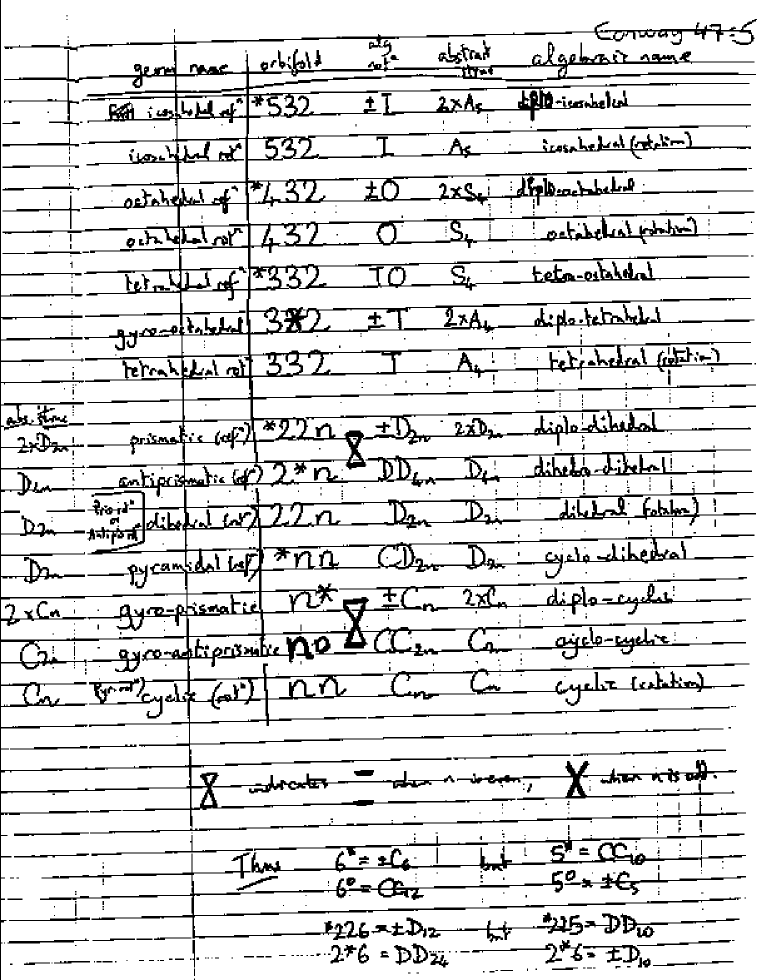 Conway 47:5
geom name orbifold alg notⁿ abstract struc algebraic name
icosahedral refⁿ *532 ±I 2×A₅ diplo-icosahedral
icosahedral rotⁿ 532 I A₅ icosahedral (rotation)
octahedral refⁿ *432 ±O 2×S₄ diplo-octahedral
octahedral rotⁿ 432 O S₄ octahedral (rotation)
tetrahedral refⁿ *332 TO S₄ tetra-octahedral
gyro-octahedral 3*2 ±T 2×A₄ diplo-tetrahedral
tetrahedral rotⁿ 332 T A₄ tetrahedral (rotation)
abs. struc
2×D₂ₙ prismatic (refⁿ) *22n ±D₂ₙ 2×D₂ₙ diplo-dihedral
D₄ₙ antiprismatic (refⁿ) 2*n DD₄ₙ D₄ₙ dihedro-dihedral
D₂ₙ dihedral (rotⁿ) 22n D₂ₙ D₂ₙ dihedral (rotation)
D₂ₙ pyramidal (refⁿ) *nn CD₂ₙ D₂ₙ cyclo-dihedral
2×Cₙ gyro-prismatic n* ±Cₙ 2×Cₙ diplo-cyclic
C₂ₙ gyro-antiprismatic no CC₂ₙ C₂ₙ cyclo-cyclic
Cₙ cyclic (rotⁿ) nn Cₙ Cₙ cyclic (rotation)
indicates = when n is even, X when n is odd.
Thus 6* = ±C₆ but 5* = CC₁₀
6° = CC₁₂ 5° = ±C₅
*226 = ±D₁₂ but *225 = DD₂₀
2*6 = DD₂₄ 2*6 = ±D₁₀